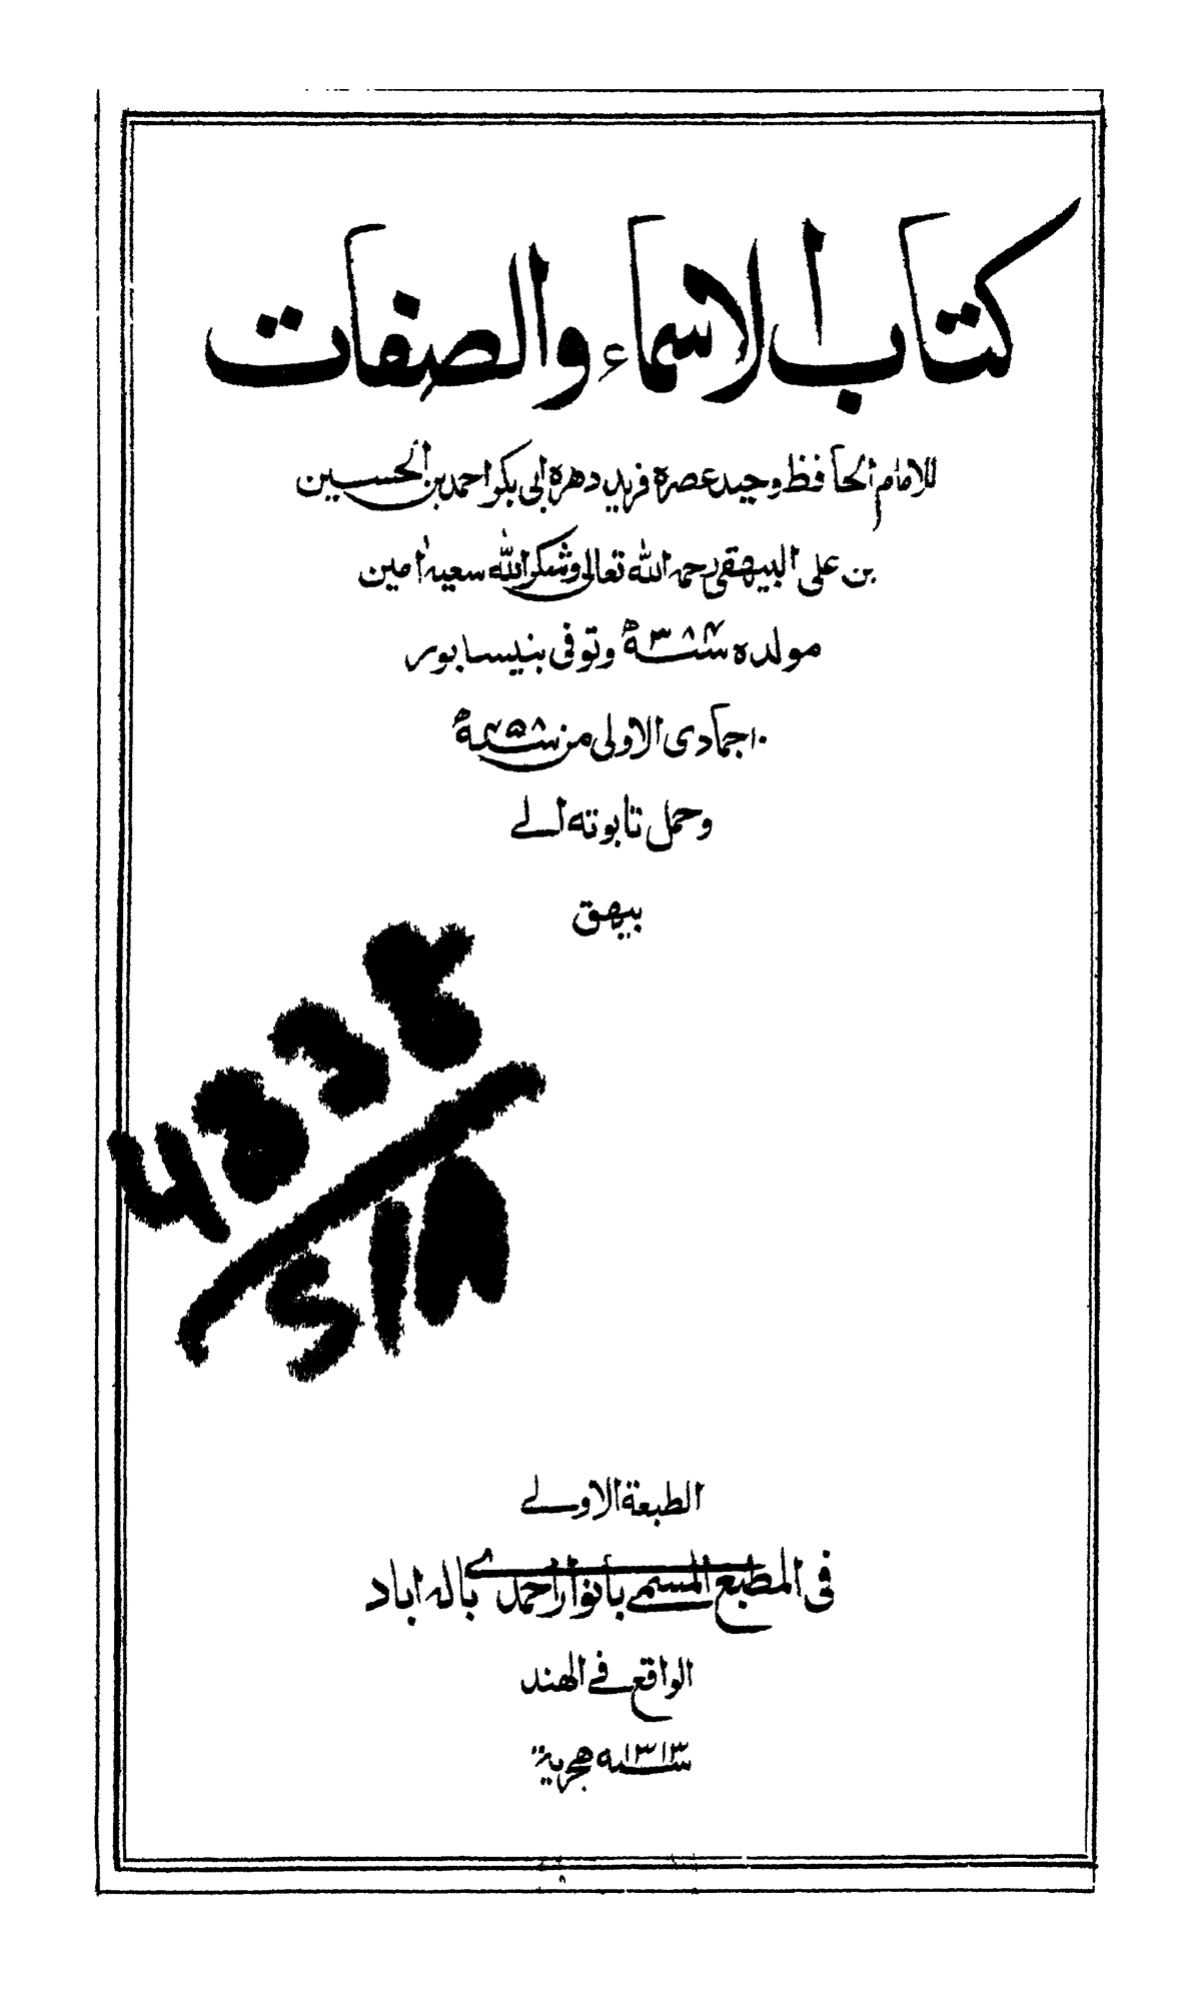 كتاب الاسماء والصفات
للامام الحافظ وحيد عصره فريد دهره ابى بكر احمد بن الحسين
بن على البيهقى رحمه الله تعالى وشكر الله سعيه امين
مولده سنة ٣٨٤ھ وتوفى بنيسابور
١٠ جمادى الاولى من سنة ٤٥٨ھ
وحمل تابوته الے
بيهق
الطبعة الاولے
فى المطبع المسمى بانوار احمدى باله اباد
الواقع فے الهند
سنه ١٣١٣ هجرية